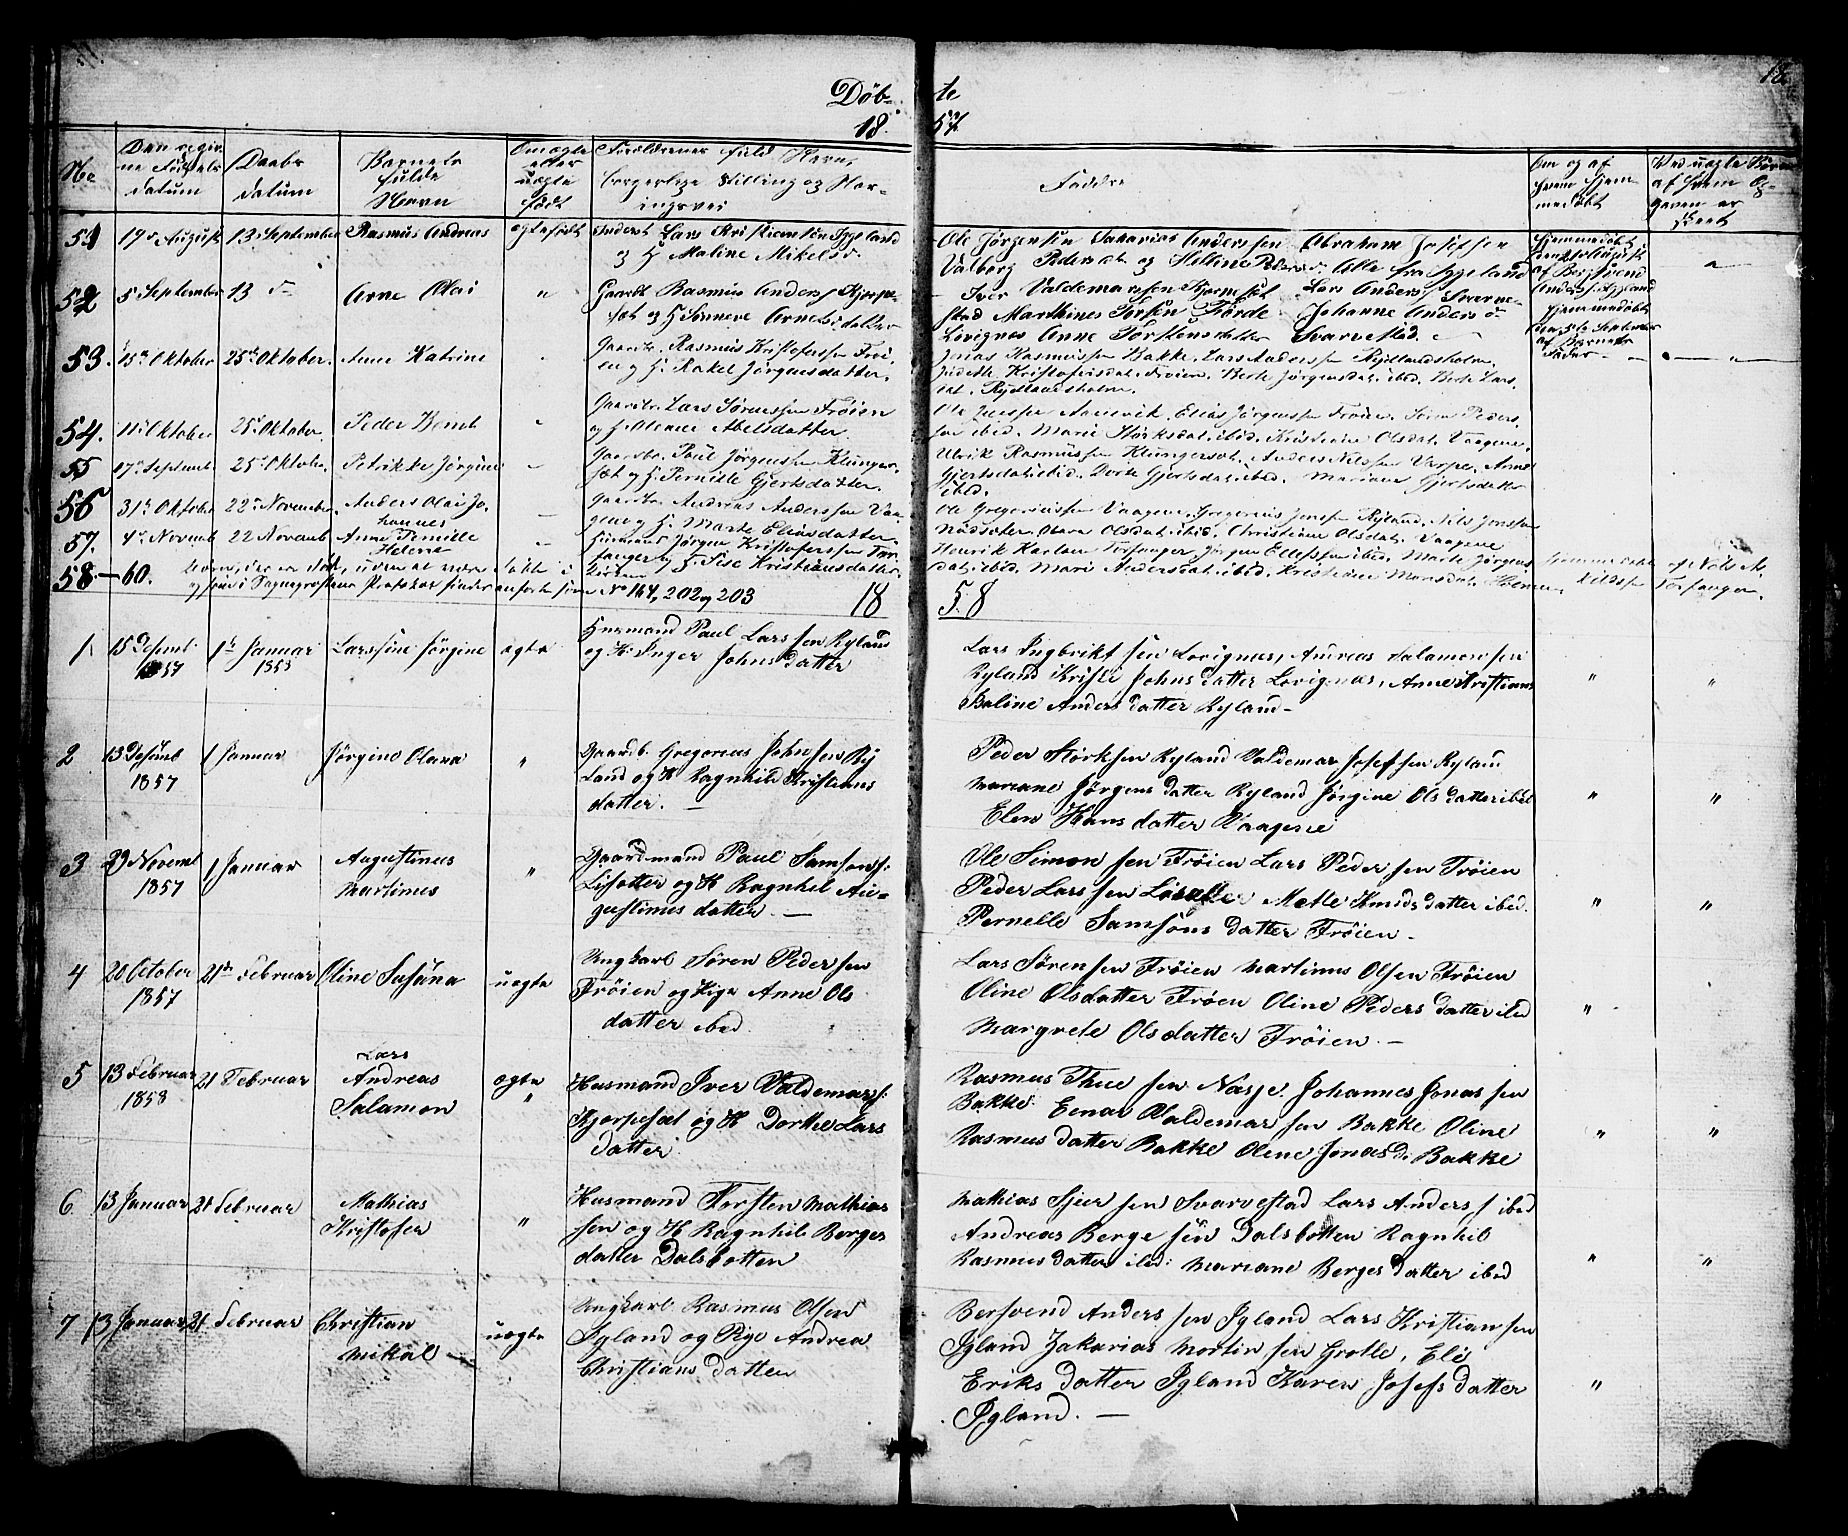 Døbte
18
1857.
No
Den egne Fødselsdatum
Daabsdatum
Barnets fulde Navn
Om ægte eller uægte født
Forældrenes fulde Navn, borgerlige Stilling og Næringsvei
Faddre
Om og af hvem hjemmedøbt
Ved uægte Børn af hvem Opgaven er skeet
51 19de August 13de September Rasmus Andreas ægtefødt Lars Kristiensen Iggeland
og H Maline Mikelsd.
Ole Jørgensen Sakarias Anderssen Abraham Josefsen
Valborg Pedersdat og Helline Alle fra Iggeland
Hjemmedøbt August af Bersvend Anders. Iggeland
52 5 September 13 d" Arne Olai " Gaardb Rasmus Anders. Kjørpe-
set og H Sinneve Arnets datter
Iver Valdemarssen Kjørpeset Lars Anders. Svarve-
stad Marthines Torsen Førde Johanne Anders d
Lovignes Anne Torstensdatter Svarvestad.
Hjemmedøbt den 5te September af Barnets Fader
53. 15de Oktober 25de Oktober. Anne Katrine " Gaardbr. Rasmus Kristofersen Frøi-
en og H. Rakel Jørgensdatter.
Jonas Rasmussen Bakke, Lars Anderssen Rydlandsholm,
Judethe Kristofersdat. Frøien. Berte Jørgensdat. ibid. Berte Lars.
dat. Rydlandsholm.
54. 11te Oktober 25de Oktober. Peder Bernt " Gaardbr. Lars Sørenssen Frøien
og H. Oleane Abelsdatter.
Ole Janssen Elias Jørgenssen Frøien. Søren Peders-
sen ibid. Marie Størksdat. ibid. Kristiane Olsdat. Vaagene.
55 17de Septemb 25de Oktober. Petrikke Jørgine " Gaardbr. Poul Jørgenssen Klunger-
set og H. Pernille Gjertsdatter.
Ulrik Rasmussen Klungerset. Anders Nilssen Varpe, Anne
Gjertsdat. ibid. Dorte Gjertsdat. ibid. Mariane Gjertsdatter
ibid.
56 31te Oktober 22de November. Anders Olai Jo-
hannes — Gaardbr. Andreas Anderssen Vaa-
gene og H. Marte Eliasdatter.
Ole Gregoriussen Vaagene. Gregorius Jonssen Ryland. Nils Jonssen
Nødseter. Olara Olsdat. ibid. Christiane Olsdat. Vaagene
57. 4de Novemb 22 Novemb Anne Pernille
Helene — Huusmand Jørgen Kristoferssen Tor-
fanger og H. Sise Kristiansdatter.
Henrik Karlsen Torfanger. Jørgen Ellefssen ibid. Marte Jørgens-
dat. ibid. Mari Andersdat. ibid. Kristine Monsdat.
58.—60. Børn, der ere døbt, uden at være i Kirken
og som i Sognepræstens Protokol findes anførte som No 164, 202 og 203
1858
1 15 Desemb 1857 1te Januar 1858 Larssine Jørgine ægte Husmand Paul Larssen Ryland
og H. Inger Johnsdatter
Lars Ingbriktsen Lovignes, Andreas Salamonsen
Ryland Kristi Johnsdatter Lovignes, Anne Kristians
Baline Andersdatter Ryland — " "
2 13 Desemb 1857 1 Januar Jørgine Olava " Gaardb. Gregorius Johnsen Ry
land og H Ragnhild Kristians
datter. —
Peder Størksen Ryland Valdemar Josefsen Ryland
Mariane Jørgensdatter Ryland Jørgine Olsdatter ibid
Elen Hansdatter Vaagene " "
3 29 Novemb 1857 1 Januar Augustinus
Martinus " Gaardmand Paul Samsons:
Lisotter og H Ragnhil Au-
gustinusdatter. —
Ole Simonsen Frøien Lars Pedersen Frøien
Peder Larssen Mette Knudsdatter ibed.
Pernelle Samsonsdatter Frøien — " "
4 20 October 1857 21de Februar Oline Susana uægte Ungkarl Søren Pedersen
Frøien og Pige Anne Ols
datter ibed
Lars Sørensen Frøien Martinus Olsen Frøien
Oline Olsdatter Frøien Oline Pedersdatter ibed
Margrete Olsdatter Frøien. — "
5 13 Februar 1858 21 Februar Lars
Andreas
Salamon ægte " Husmand Iver Valdemars:
Kjørpeset og H Dorthe Lars
datter
Rasmus Thuesen Nasje Johannes Jonassen
Bakke Einar Valdemarsen Bakke Oline
Rasmusdatter Bakke Oline Jonasd: Bakke " "
6 13 Januar 21 Februar Mathias
Kristofer " Husmand Torsten Mathias
sen og H Ragnhild Berges
datter Dalsbotten
Mathias Sjursen Svarvestad Lars Anders s ibed
Andreas Bergesen Dalsbotten Ragnhil
Rasmusdatter ibed: Mariane Bergesdatter ibed " "
7 13 Januar 21 Februar Christian
Mikal — uægte Ungkarl Rasmus Olsen
Igland og Pige Andrea
Christiansdatter
Bersvend Anderssen Igland Lars Kristiansen
Igland Zakarias Mortinsen Grotle, Eli
Eriksdatter Igland Karen Josefsdatter
Igland. — "